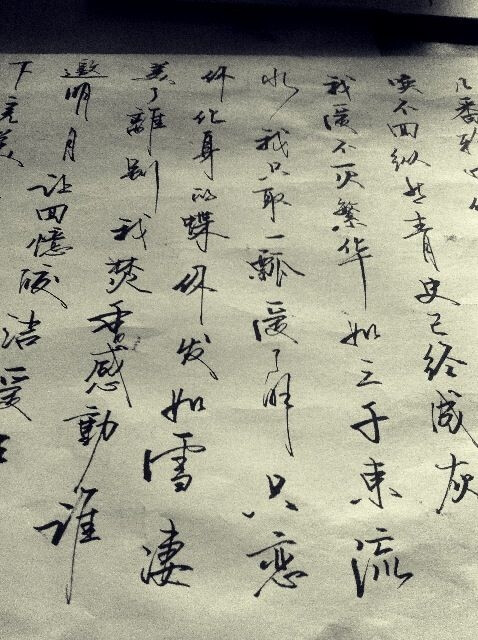 几番轮回你
唤不回纵然青史已经成灰
我爱不灭繁华如三千东流
水我只取一瓢爱了解只恋
你化身的蝶你发如雪凄
美了離别我焚香感動谁
邀明月让回憶皎洁爱在
下完美